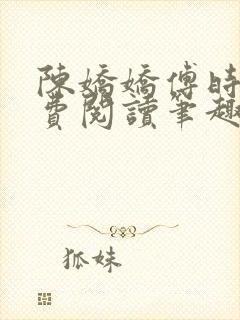 陳嬌嬌傅時
費閱讀筆趣
狐妹